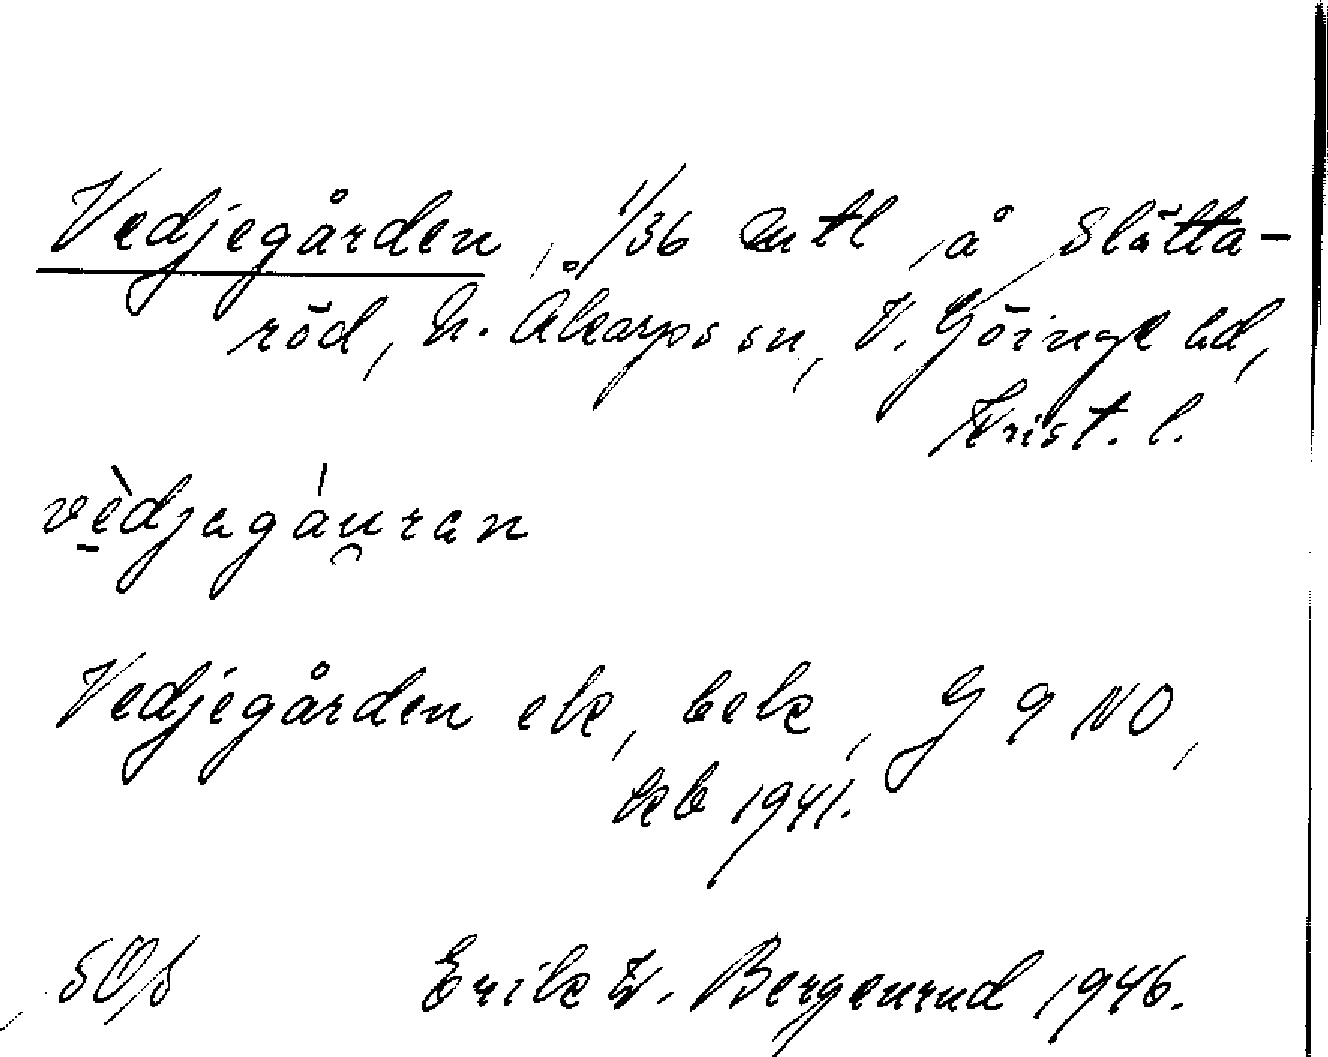 Vedjegården, 1/36 mtl å Slätta-
röd, N. Åkarps sn, V. Göinge hd,
Krist. l.
vèdjagáu̯ran
Vedjegården ek, bebk, G 9 NO,
kb 1941.
SOS Erik W. Bergenrud 1946.